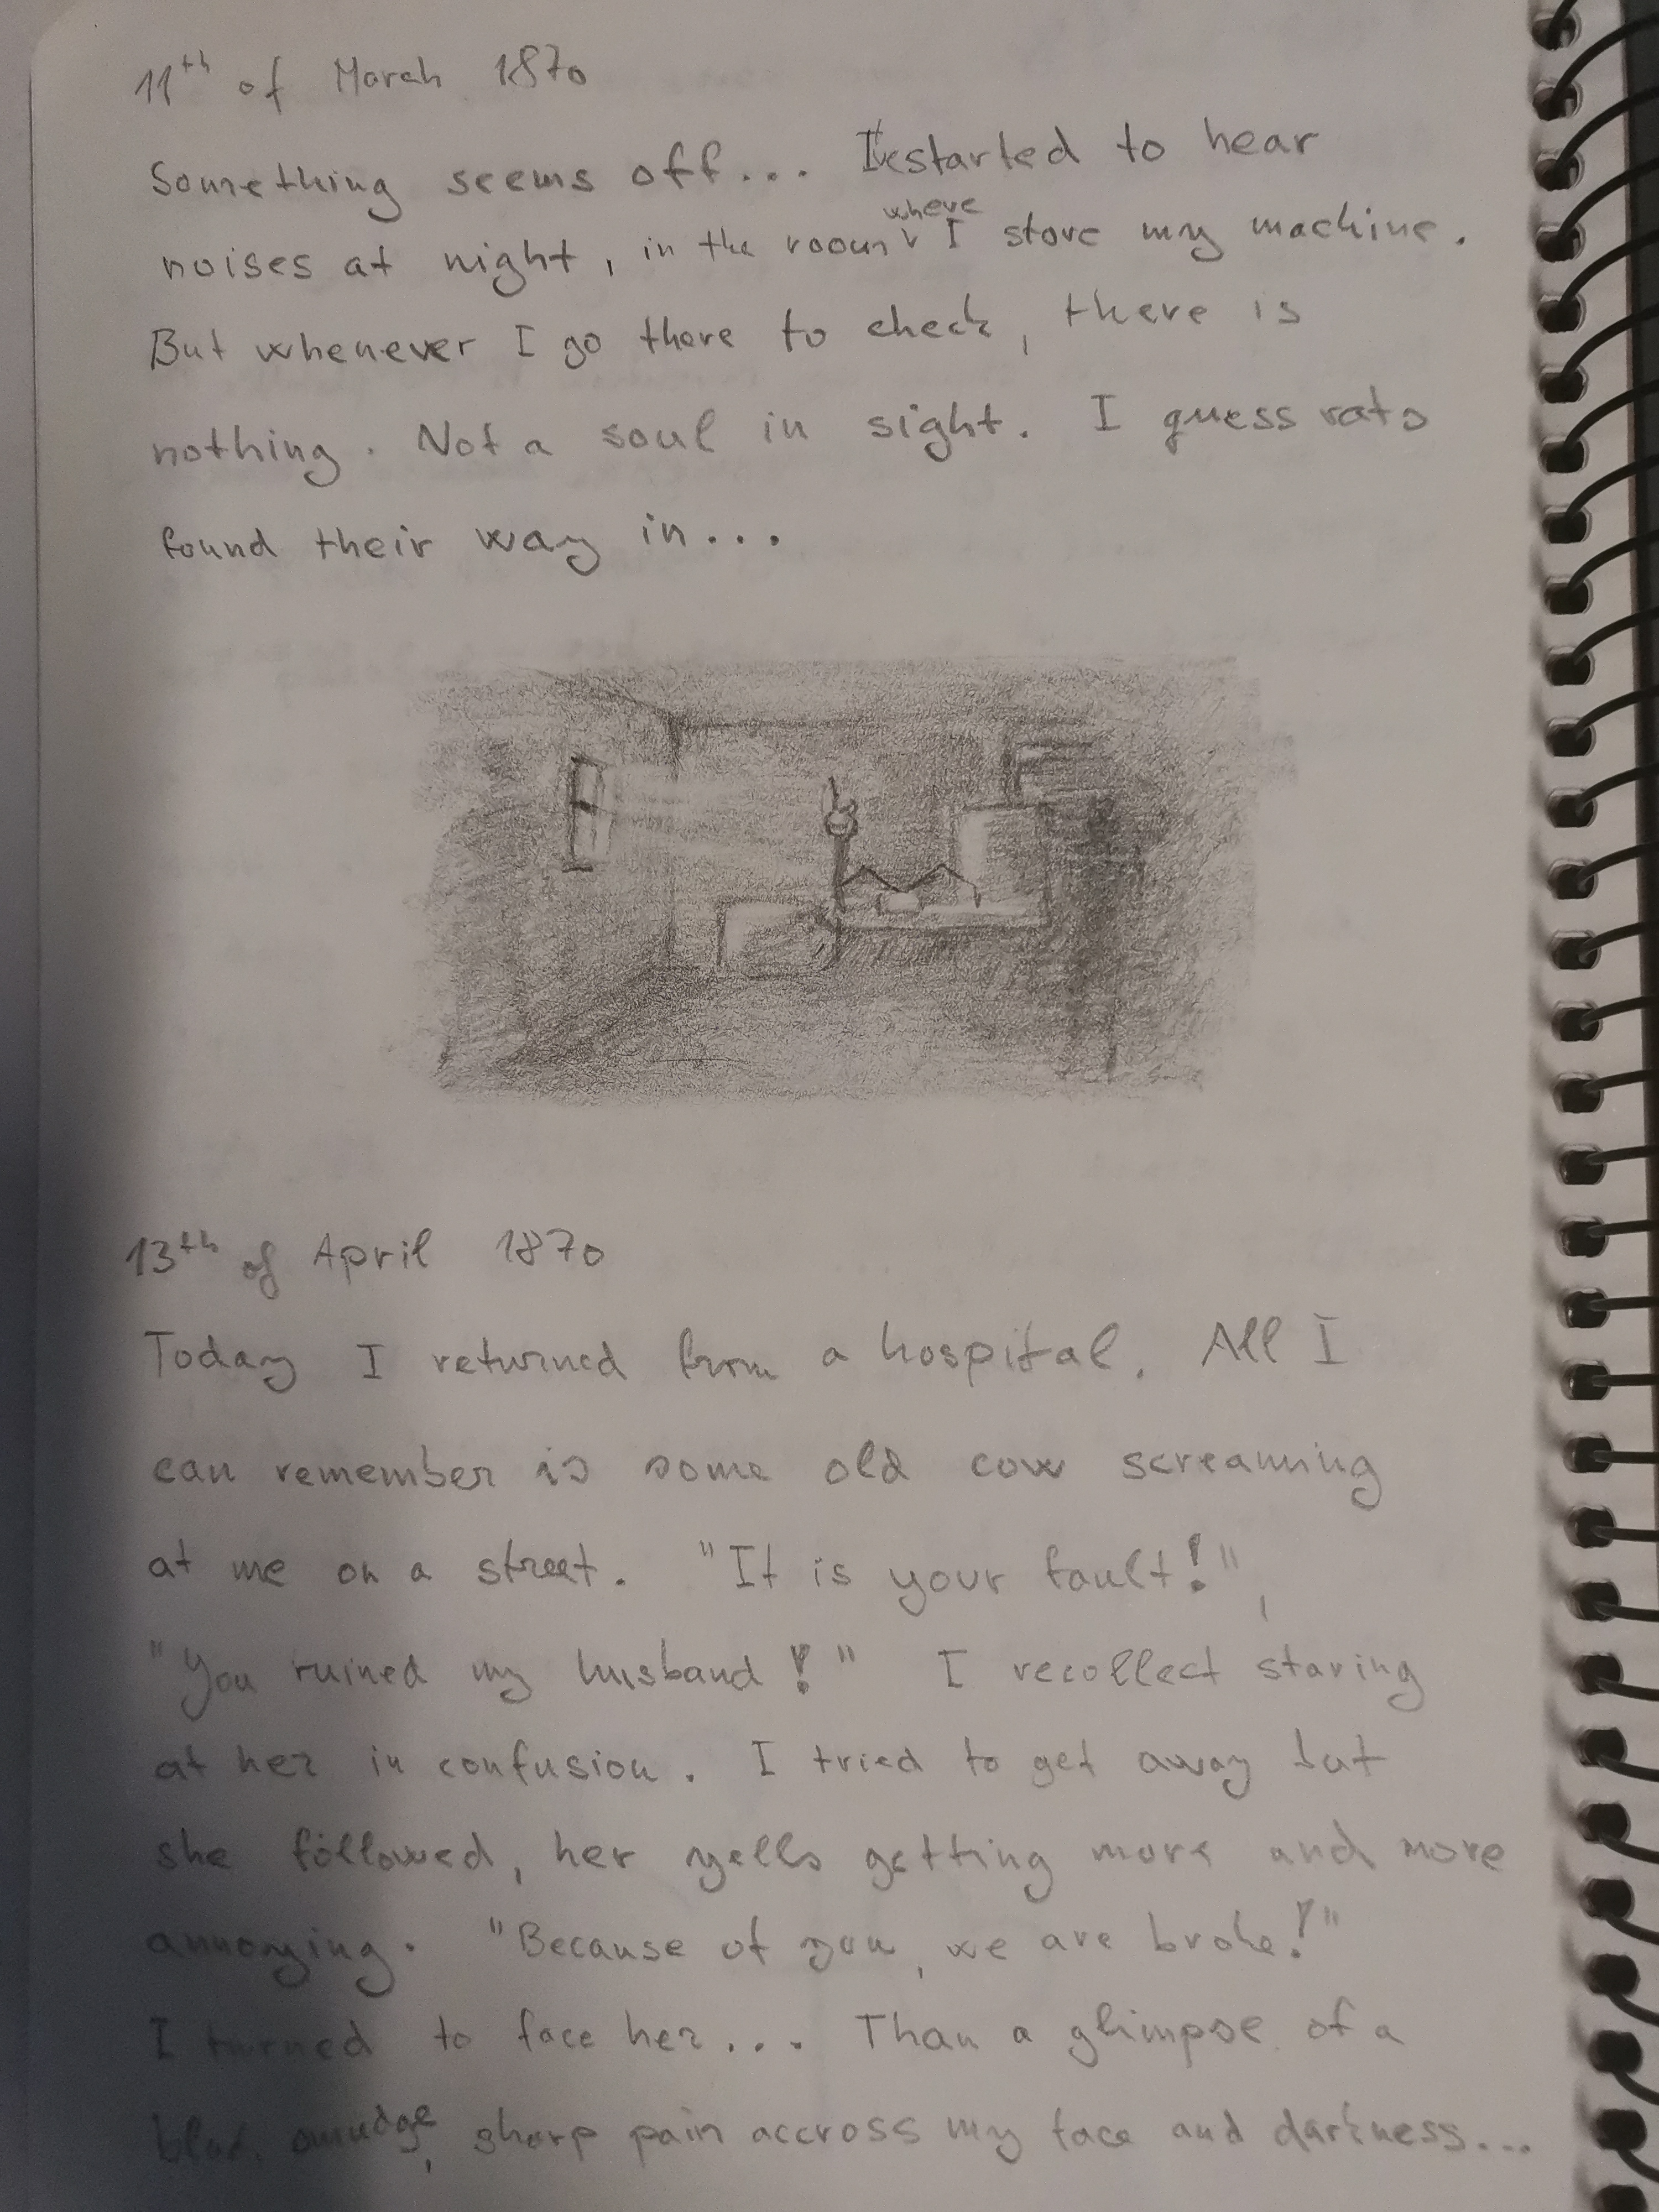 11th of March 1870
Something seems off... I've started to hear
noises at night, in the room where I store my machine.
But whenever I go there to check, there is
nothing. Not a soul in sight. I guess rats
found their way in...
13th of April 1870
Today I returned from a hospital. All I
can remember is some old cow screaming
at me on a street. "It is your fault!",
"You ruined my husband!" I recollect staring
at her in confusion. I tried to get away but
she followed, her yells getting more and more
annoying. "Because of you, we are broke!"
I turned to face her... Than a glimpse of a
smudge, sharp pain accross my face and darkness...